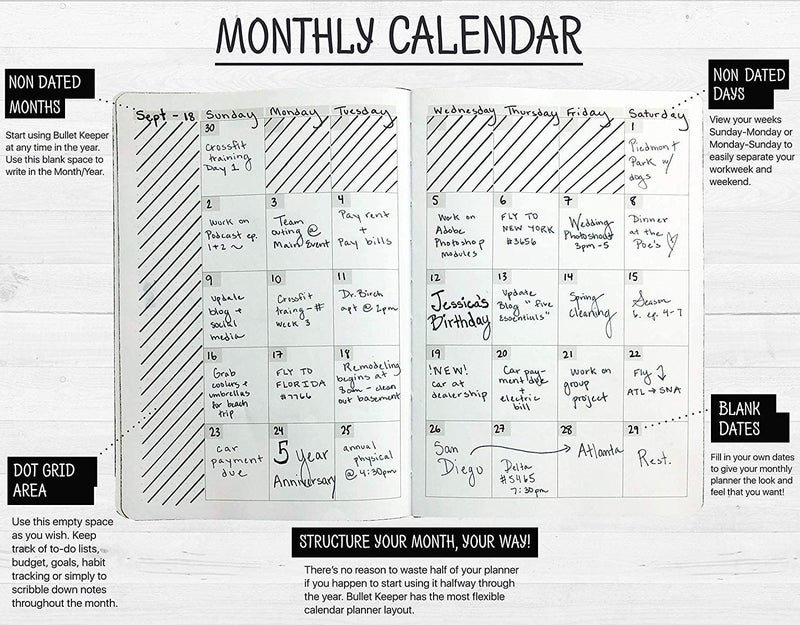 MONTHLY CALENDAR
NON DATED
MONTHS
Start using Bullet Keeper
at any time in the year.
Use this blank space to
write in the Month/Year.
NON DATED
DAYS
View your weeks
Sunday-Monday or
Monday-Sunday to
easily separate your
workweek and
weekend.
Sept - 18 Sunday Monday Tuesday Wednesday Thursday Friday Saturday
30
Crossfit
training
Day 1
1
Piedmont
Park w/
dogs
2
work on
Podcast ep.
1+2 ~
3
Team
outing @
Main Event
4
Pay rent
+
Pay bills
5
Work on
Adobe
Photoshop
modules
6
FLY TO
NEW YORK
#3656
7
Wedding
Photoshoot
3pm-5
8
Dinner
at the
Poe's ♡
9
update
blog +
social
media
10
Crossfit
traing-#
week 3
11
Dr. Birch
apt @ 2pm
12
Jessica's
Birthday
13
Update
Blog "five
Essentials"
14
Spring
cleaning
15
Season
6. ep. 4-7
16
Grab
coolers +
umbrellas
for beach
trip
17
FLY TO
FLORIDA
#7766
18
Remodeling
begins at
8am - clean
out basement
19
!NEW!
car at
dealership
20
Car pay-
ment due
+
electric
bill
21
work on
group
project
22
Fly
ATL → SNA
23
car
payment
due
24
5 Year
Anniversary
25
annual
physical
@ 4:30pm
26
San
Diego
27
Delta
#5465
7:30pm
28
Atlanta
29
Rest.
BLANK
DATES
Fill in your own dates
to give your monthly
planner the look and
feel that you want!
DOT GRID
AREA
Use this empty space
as you wish. Keep
track of to-do lists,
budget, goals, habit
tracking or simply to
scribble down notes
throughout the month.
STRUCTURE YOUR MONTH, YOUR WAY!
There's no reason to waste half of your planner
if you happen to start using it halfway through
the year. Bullet Keeper has the most flexible
calendar planner layout.